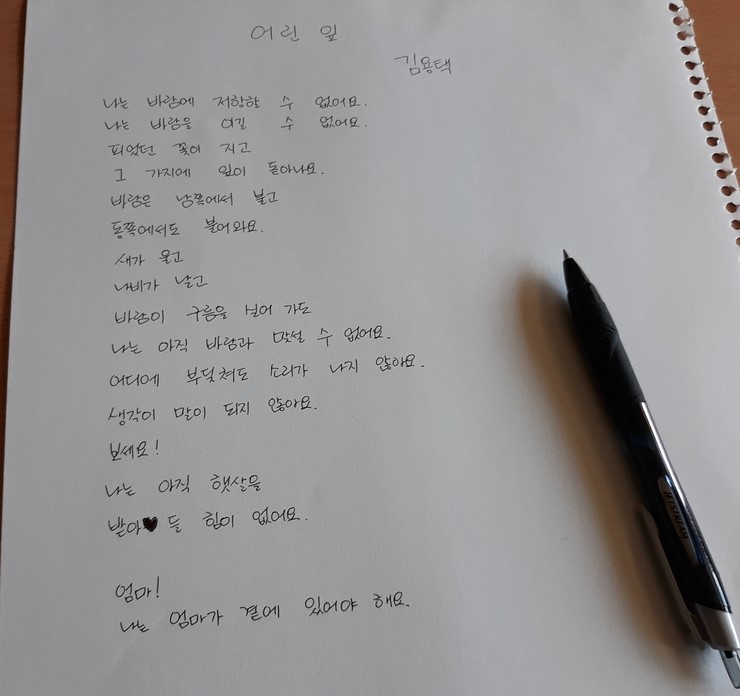 어린 잎
김용택
나는 바람에 저항할 수 없어요.
나는 바람을 이길 수 없어요.
피었던 꽃이 지고
그 가지에 잎이 돋아나요.
바람은 남쪽에서 불고
동쪽에서도 불어와요.
새가 울고
나비가 날고
바람이 구름을 실어 가도
나는 아직 바람과 맞설 수 없어요.
어디에 부딪쳐도 소리가 나지 않아요.
생각이 말이 되지 않아요.
보세요!
나는 아직 햇살을
받아♥ 들 힘이 없어요.
엄마!
나는 엄마가 곁에 있어야 해요.
JETSTREAM